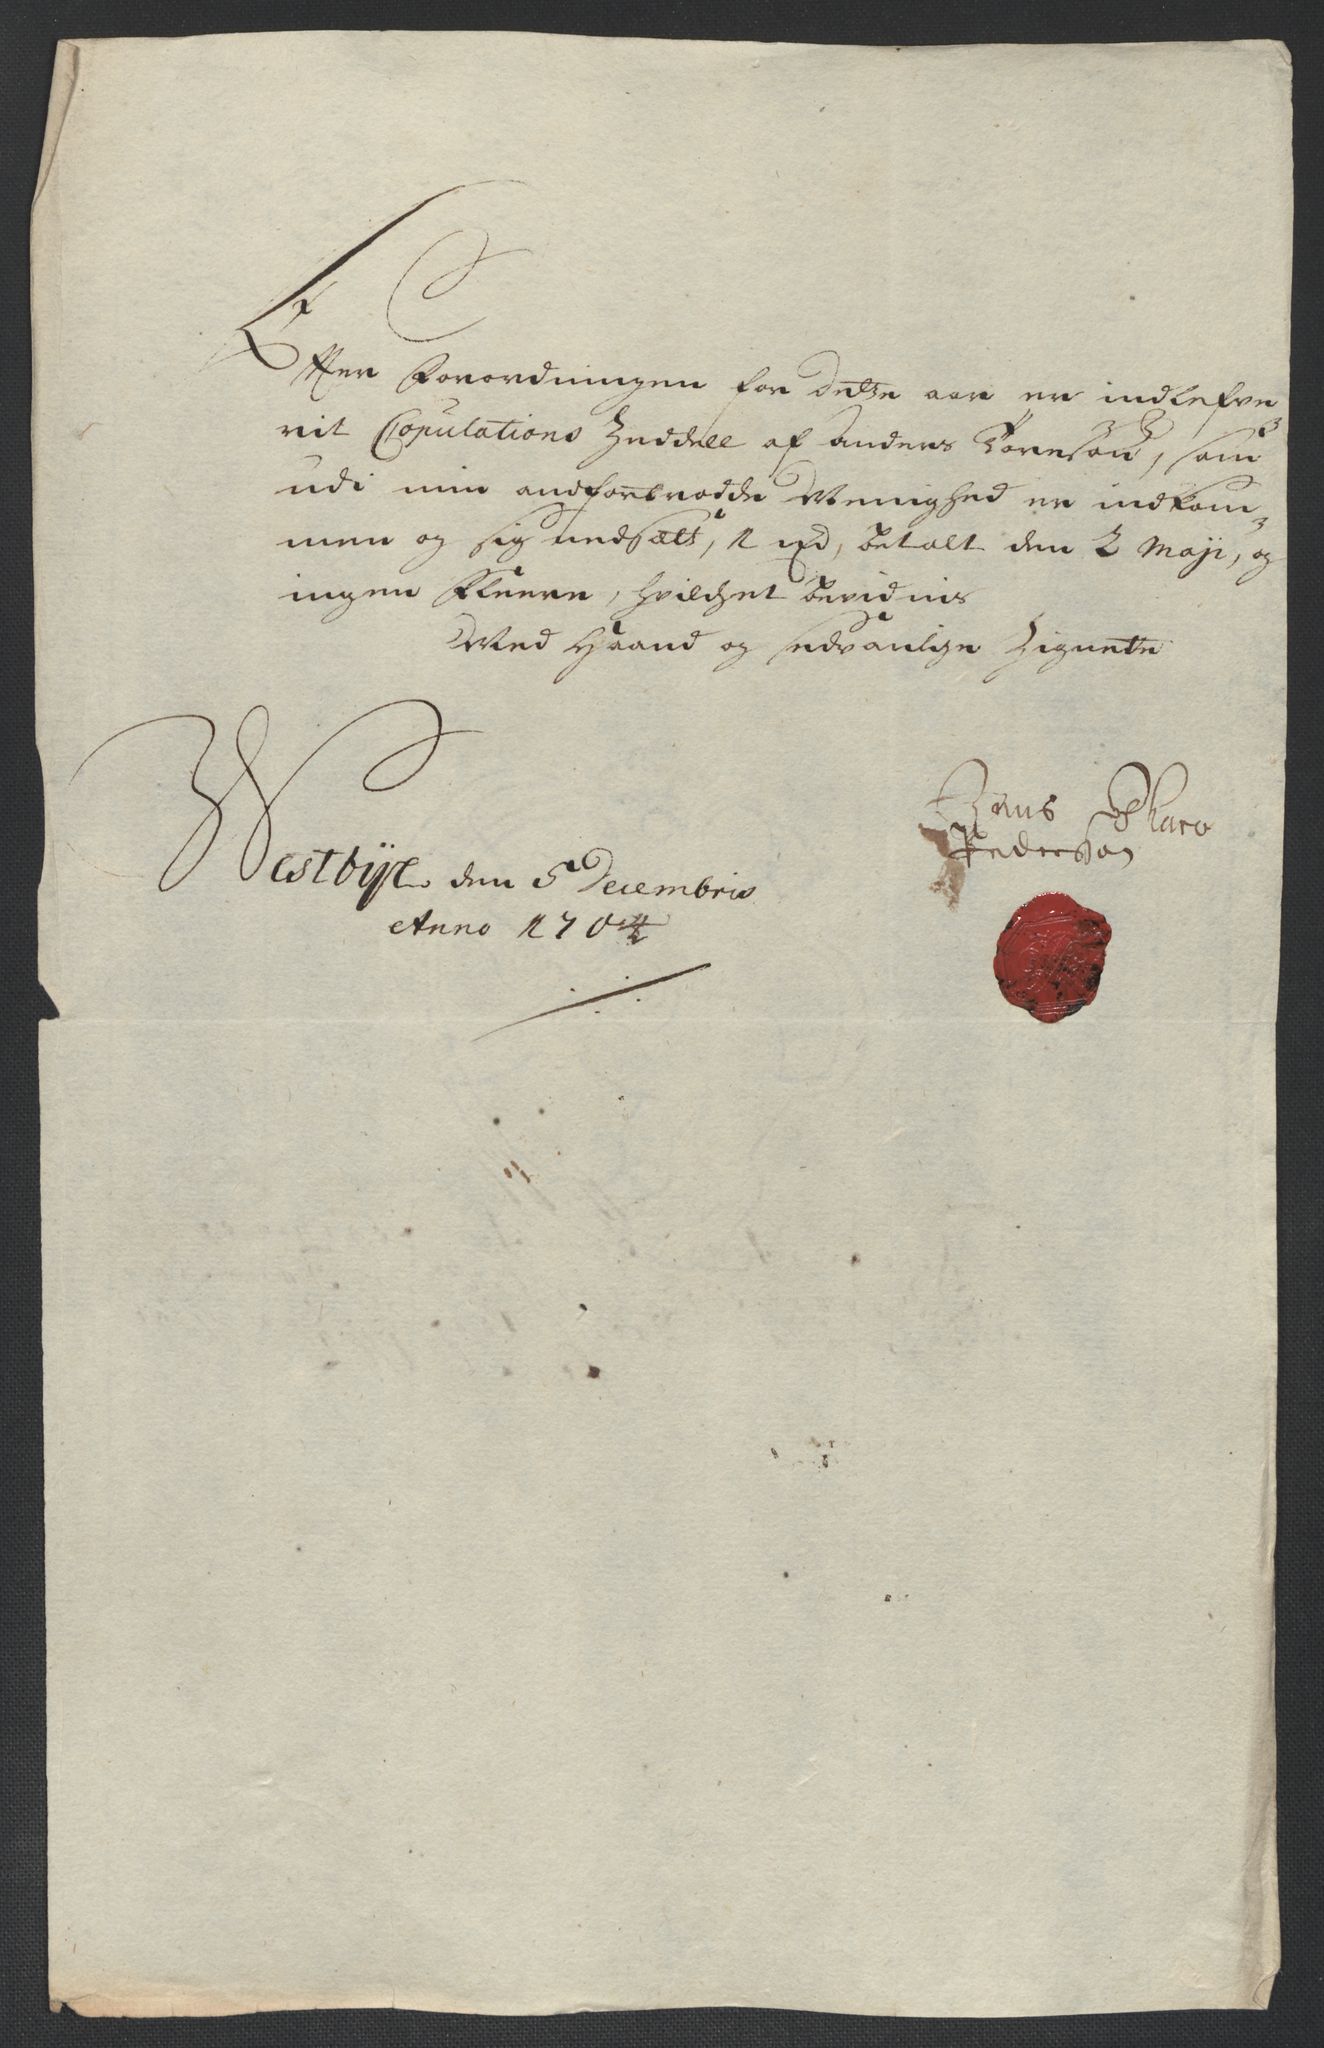 Efter Forordningen for dette aar er indlefve
rit Copulations Zeddell af Anders Toresøn, som
udi min anfortrodde Menighed er indkom-
men og sig nedsatt, 1 rd, betalt den 2 Maji, og
ingen Fleere, hvilchet bevidnis
Med Haand og sedvanlige Zignete
Westbÿe den 5 Decembris
Anno 1704
Hans Pharo
Pedersøn